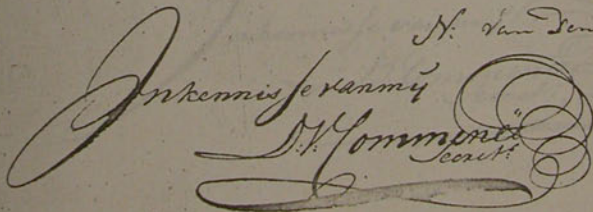 N: Van Den
In kennisse van mij
D: V: Commenée
Secret:s